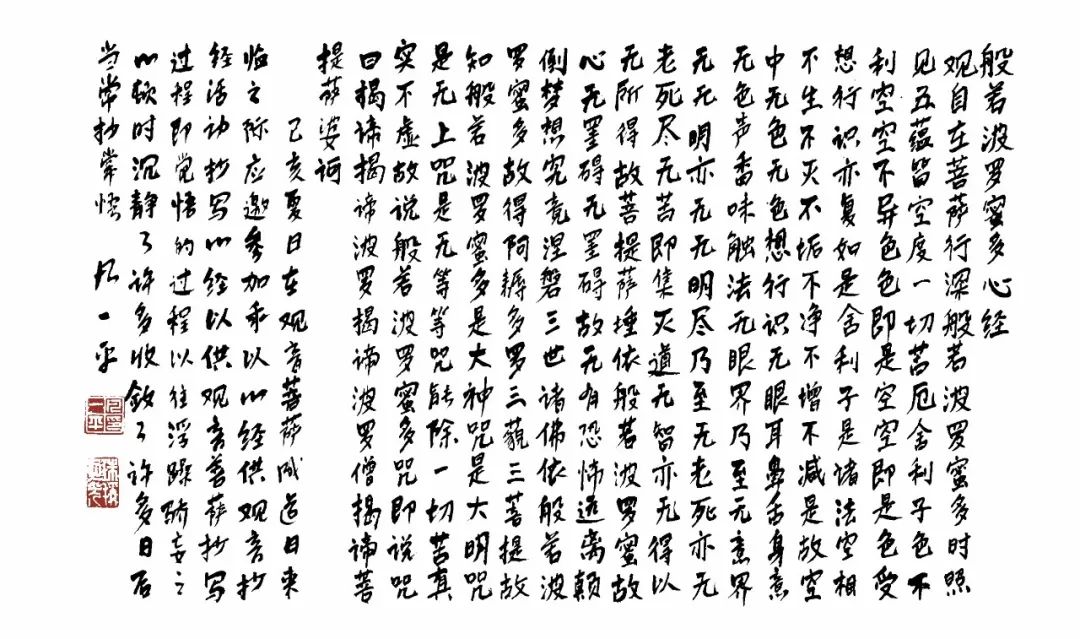 般若波罗蜜多心经
观自在菩萨行深般若波罗蜜多时照
见五蕴皆空度一切苦厄舍利子色不
利空空不异色色即是空空即是色受
想行识亦复如是舍利子是诸法空相
不生不灭不垢不净不增不减是故空
中无色无色想行识无眼耳鼻舌身意
无色声香味触法无眼界乃至无意界
无无明亦无无明尽乃至无老死亦无
老死尽无苦即集灭道无智亦无得以
无所得故菩提萨埵依般若波罗蜜故
心无罣碍无罣碍故无有恐怖远离颠
倒梦想究竟涅磐三世诸佛依般若波
罗蜜多故得阿耨多罗三藐三菩提故
知般若波罗蜜多是大神咒是大明咒
是无上咒是无等等咒能除一切苦真
实不虚故说般若波罗蜜多咒即说咒
曰揭谛揭谛波罗揭谛波罗僧揭谛菩
提萨婆诃
己亥夏日在观音菩萨成道日来
临之际应邀参加乘以心经供观音抄
经活动抄写心经以供观音菩萨抄写
过程即觉悟的过程以往浮躁骄妄之
心顿时沉静了许多收敛了许多日后
当常抄常悟 凡一平